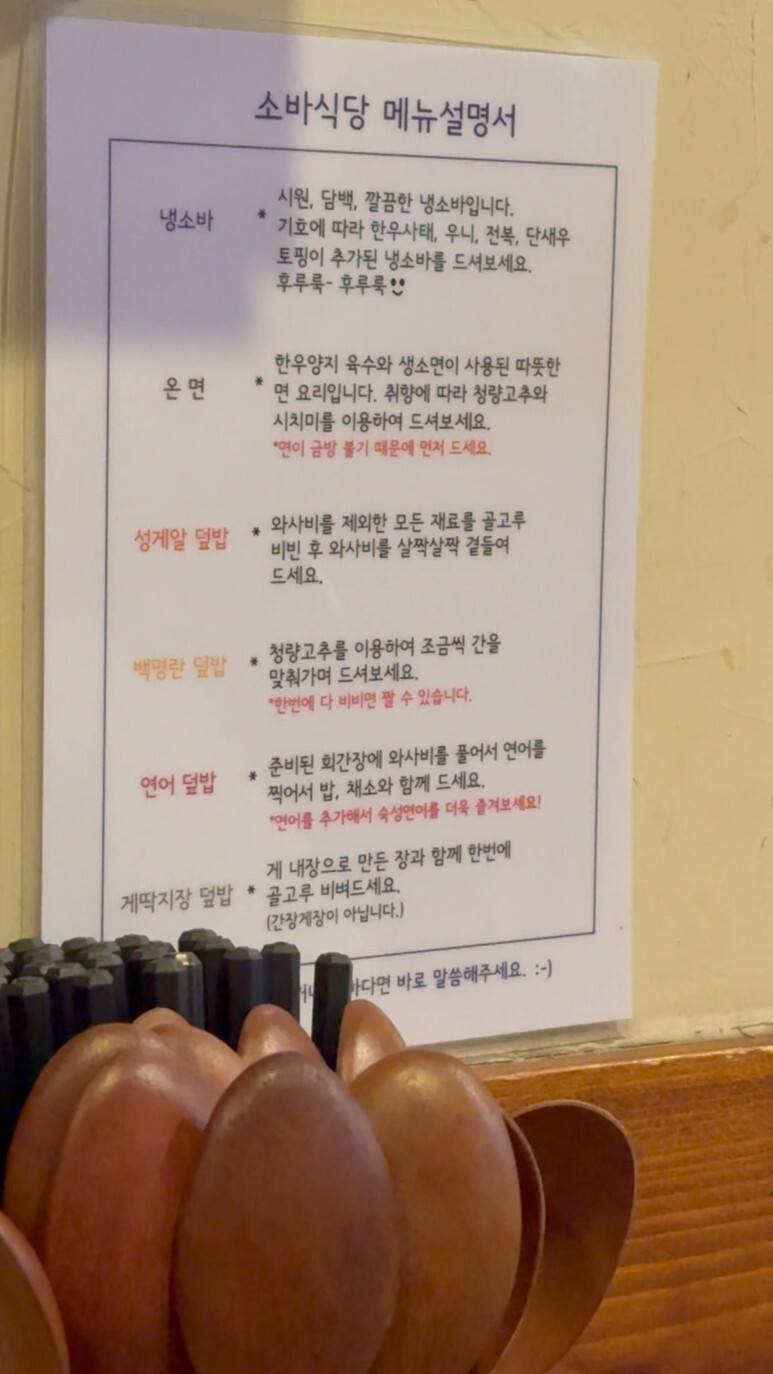 소바식당 메뉴설명서
냉소바 * 시원, 담백, 깔끔한 냉소바입니다.
기호에 따라 한우사태, 우니, 전복, 단새우
토핑이 추가된 냉소바를 드셔보세요.
후루룩- 후루룩
온 면 * 한우양지 육수와 생소면이 사용된 따뜻한
면 요리입니다. 취향에 따라 청량고추와
시치미를 이용하여 드셔보세요.
*면이 금방 불기 때문에 먼저 드세요.
성게알 덮밥 * 와사비를 제외한 모든 재료를 골고루
비빈 후 와사비를 살짝살짝 곁들여
드세요.
백명란 덮밥 * 청량고추를 이용하여 조금씩 간을
맞춰가며 드셔보세요.
*한번에 다 비비면 짤 수 있습니다.
연어 덮밥 * 준비된 회간장에 와사비를 풀어서 연어를
찍어서 밥, 채소와 함께 드세요.
*연어를 추가해서 숙성연어를 더욱 즐겨보세요!
게딱지장 덮밥 * 게 내장으로 만든 장과 함께 한번에
골고루 비벼드세요.
(간장게장이 아닙니다.)
바로 말씀해주세요. :-)